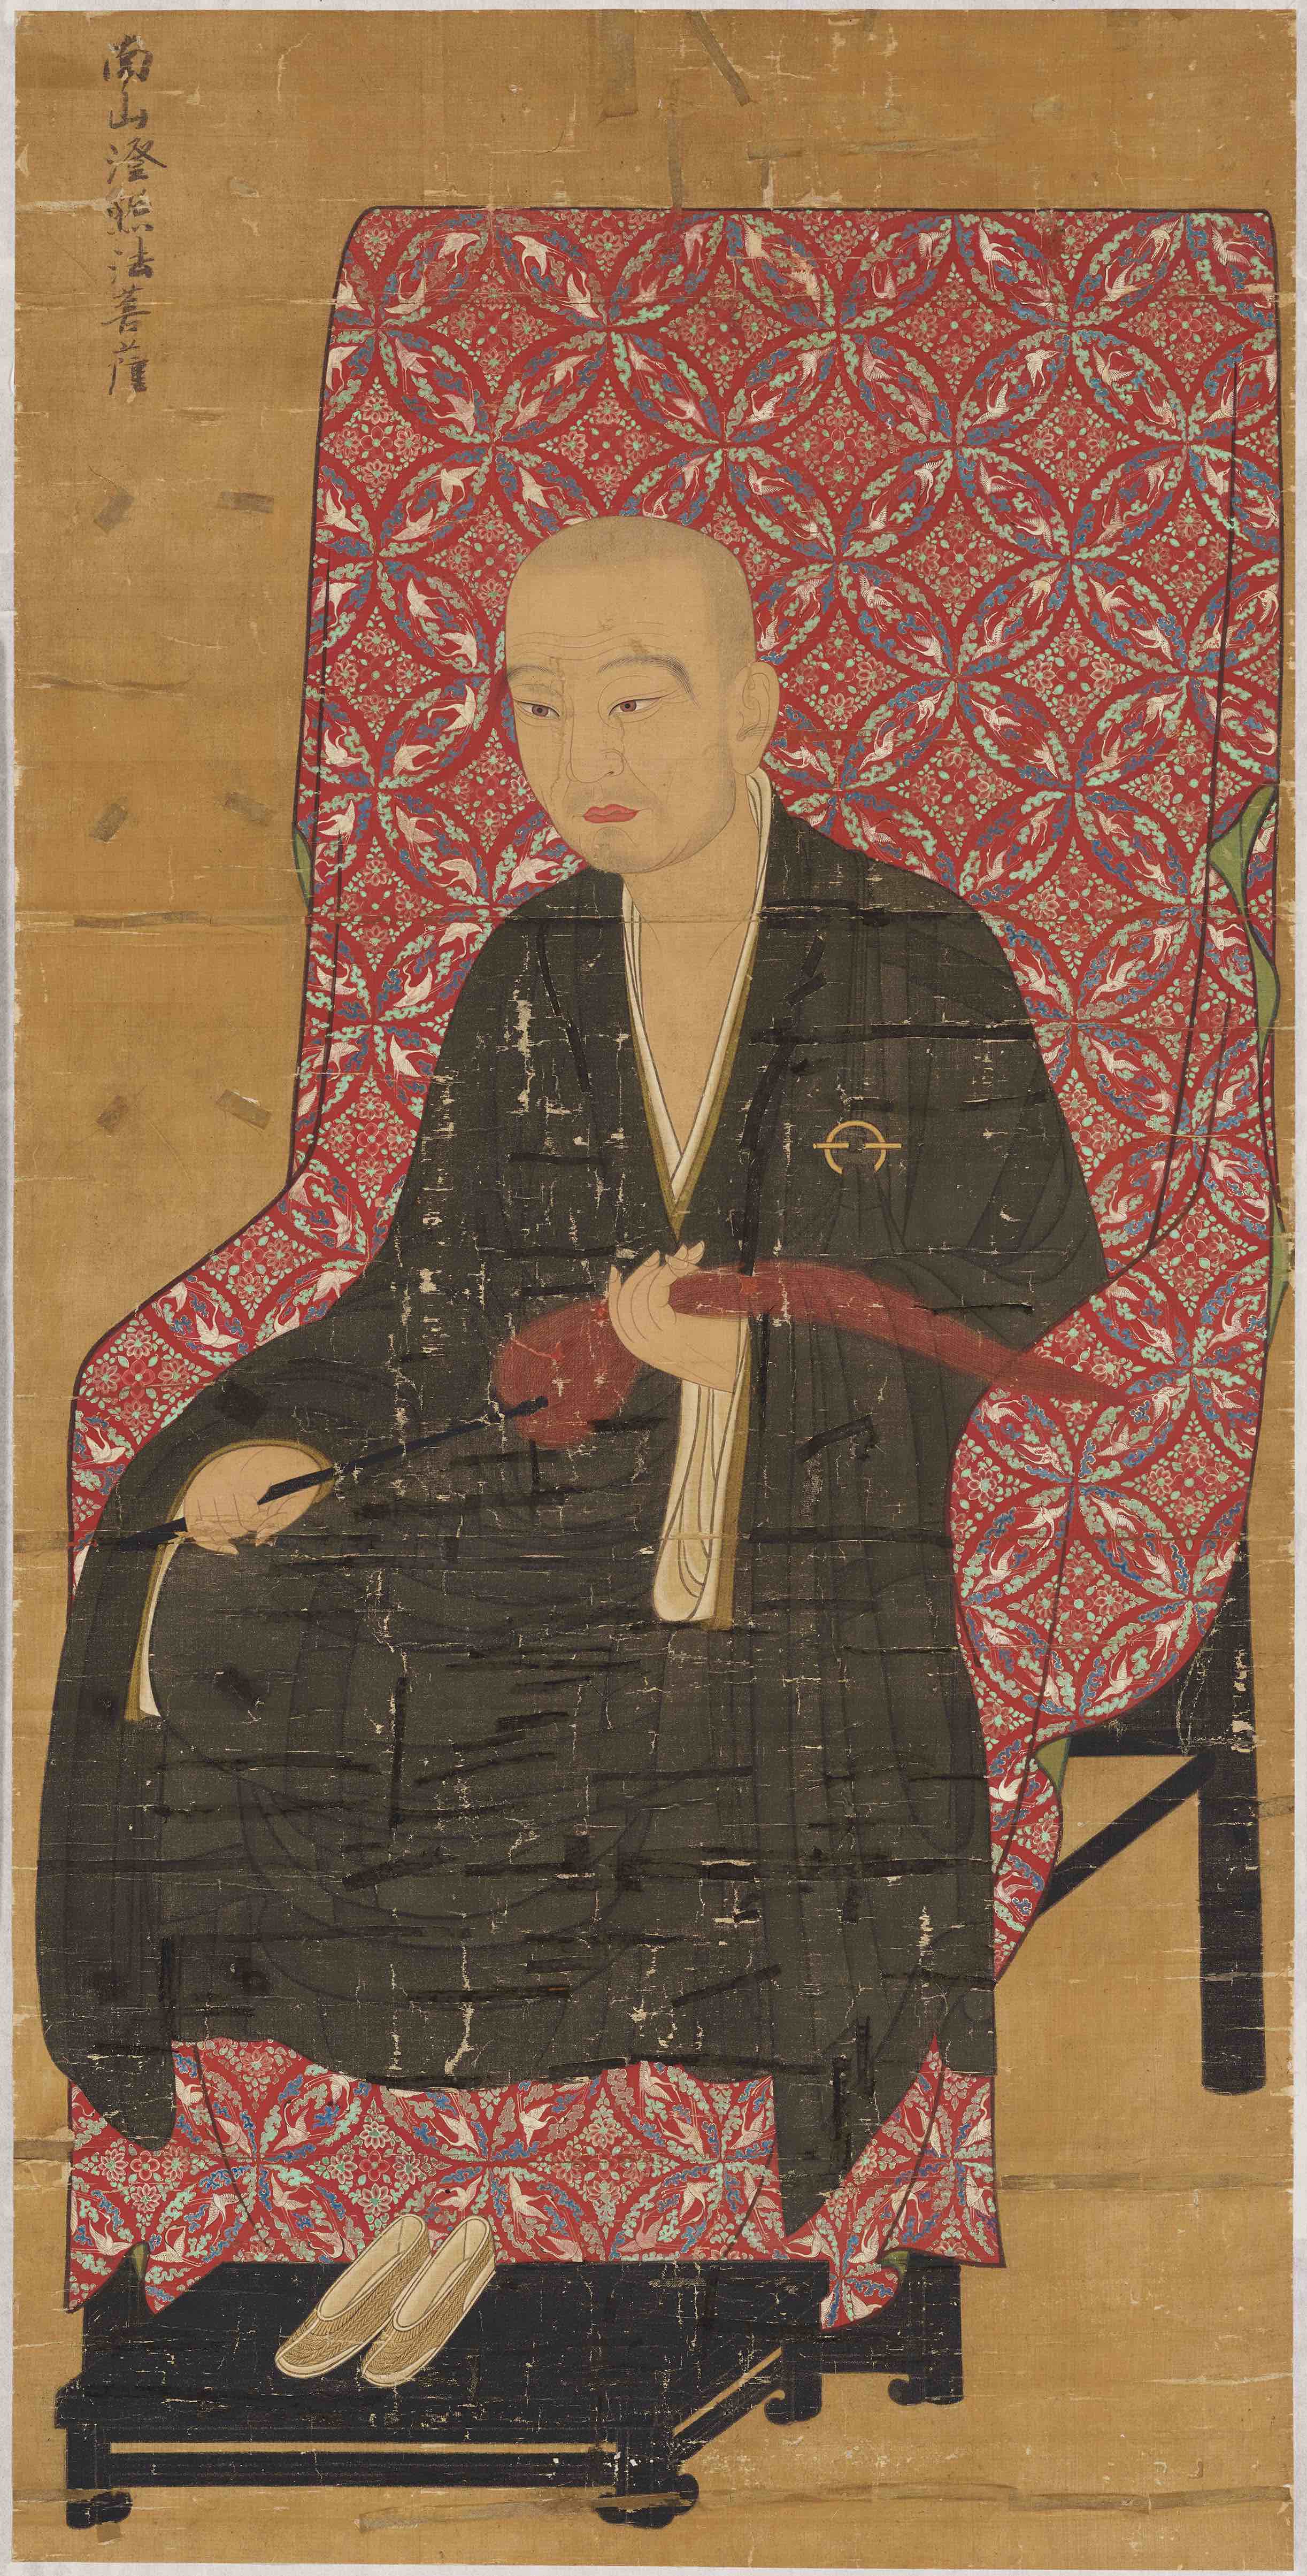 南山澄照法菩薩